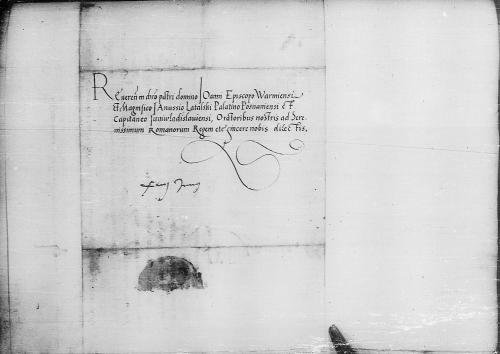 Reveren in chro patri domino Ioanni Episcopo Warmiensi
et Magnifico Ianussio Latalski Palatino Posnaniensi et
Capitaneo Iuniwladislawiensi, Oratoribus nostris ad Sere
nissimum Romanorum Regem etc sincere nobis dilectis.